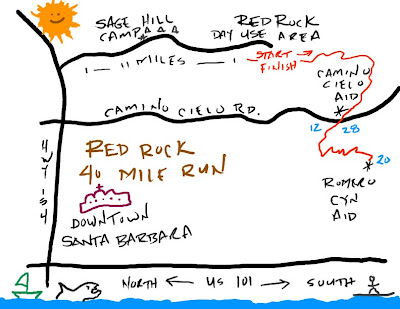 SAGE HILL
CAMP
RED ROCK
DAY USE AREA
11 MILES
START
FINISH
CAMINO
CIELO
AID
CAMINO CIELO RD.
12
28
HWY 154
RED ROCK
40 MILE RUN
20
ROMERO
CYN
AID
DOWNTOWN
SANTA BARBARA
NORTH ← US 101 → SOUTH